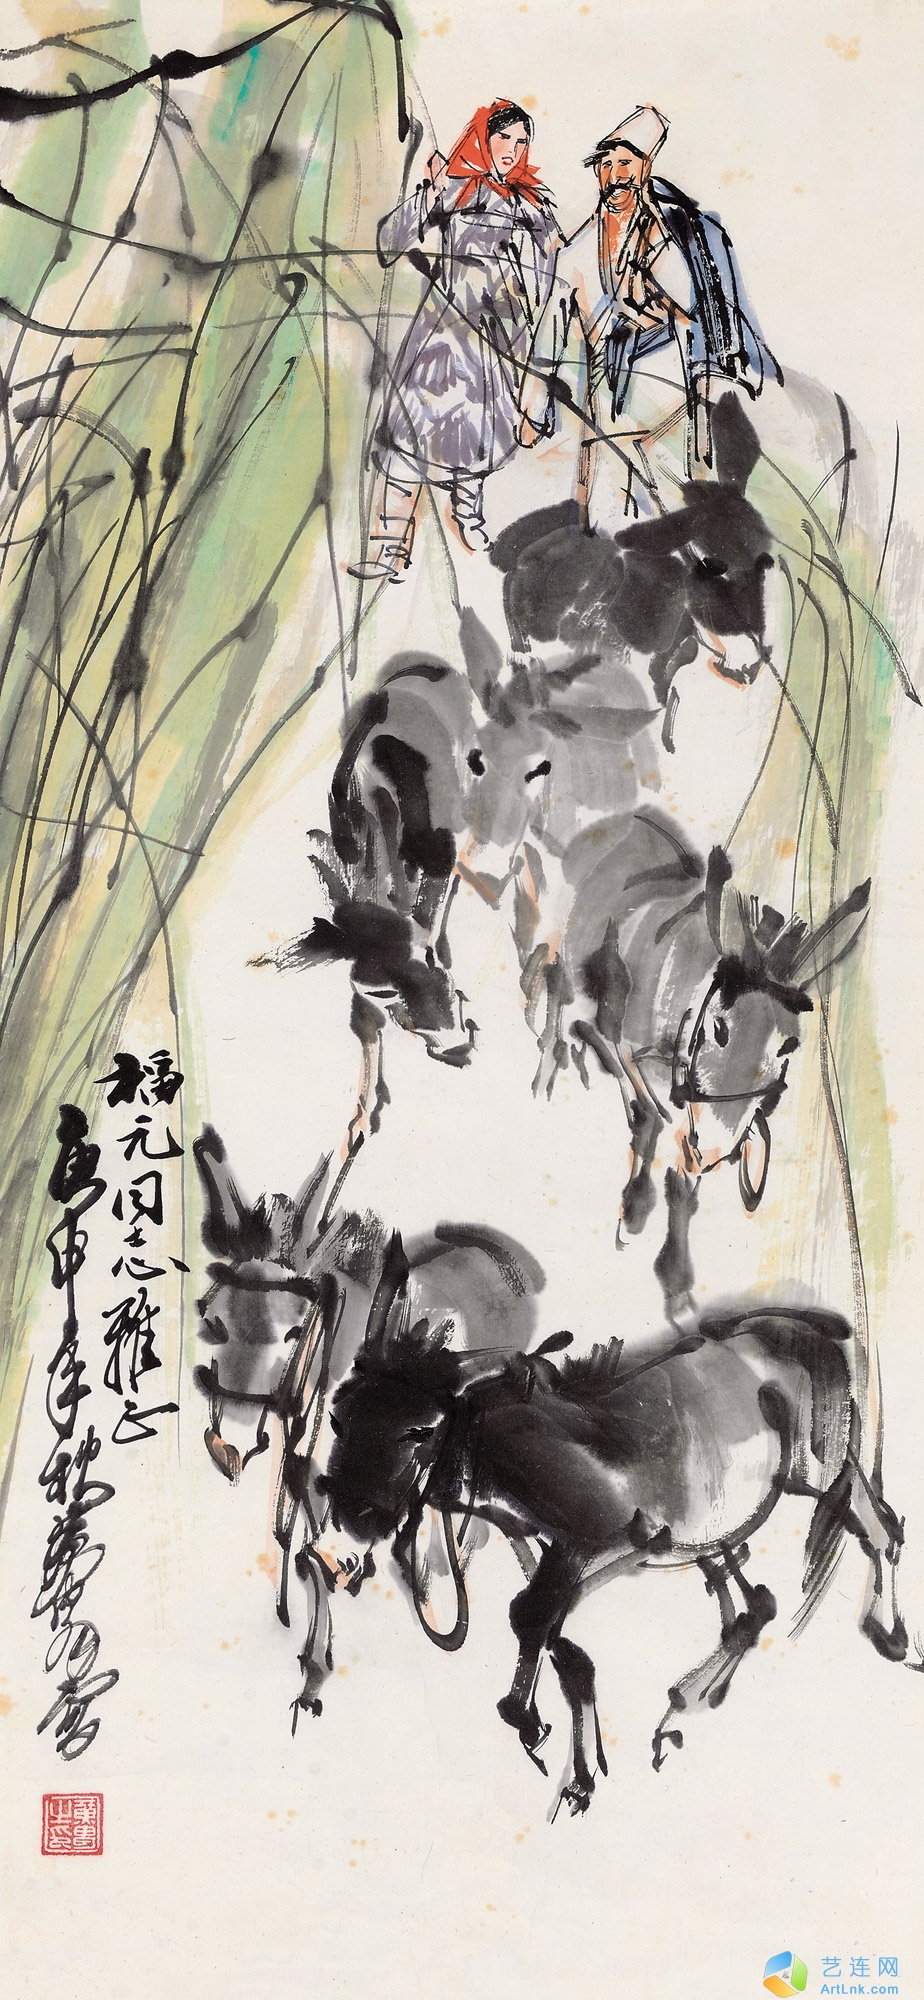 福元同志雅正
庚申年秋黄胄写
黄胄之印
艺连网
ArtLnk.com